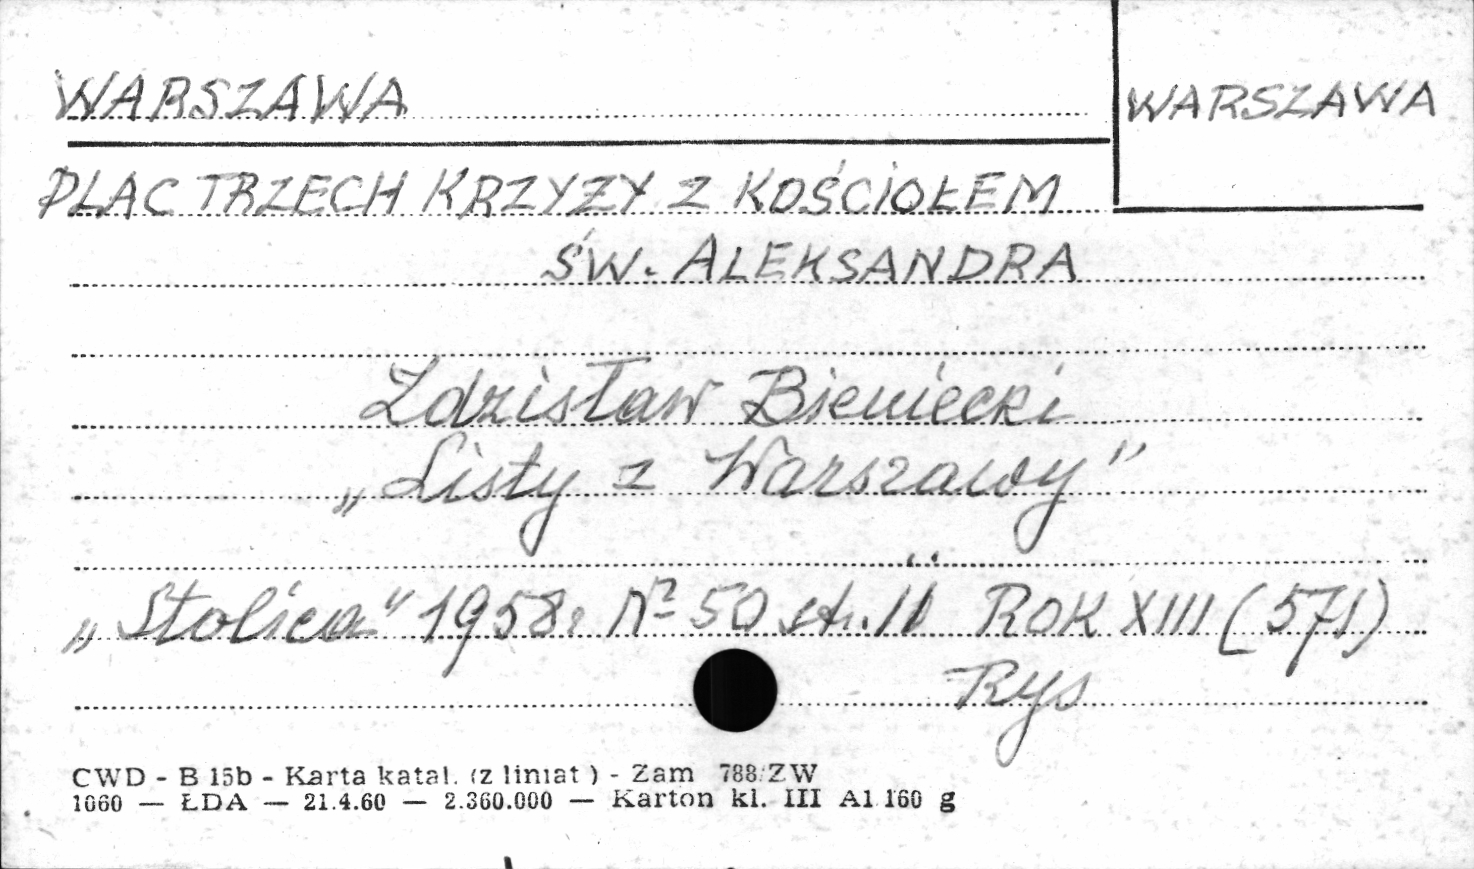 WARSZAWA
WARSZAWA
PLAC TRZECH KRZYZY Z KOŚCIOŁEM
ŚW. ALEKSANDRA
Zdzisław Bieniecki
„Listy z Warszawy"
„Stolica" 1958r Nº 50 str. 11 ROK XIII (571)
Rys
CWD - B 15b - Karta katal. (z liniat ) - Zam 788/ZW
1060 — ŁDA — 21.4.60 — 2.360.000 — Karton kl. III A1 160 g